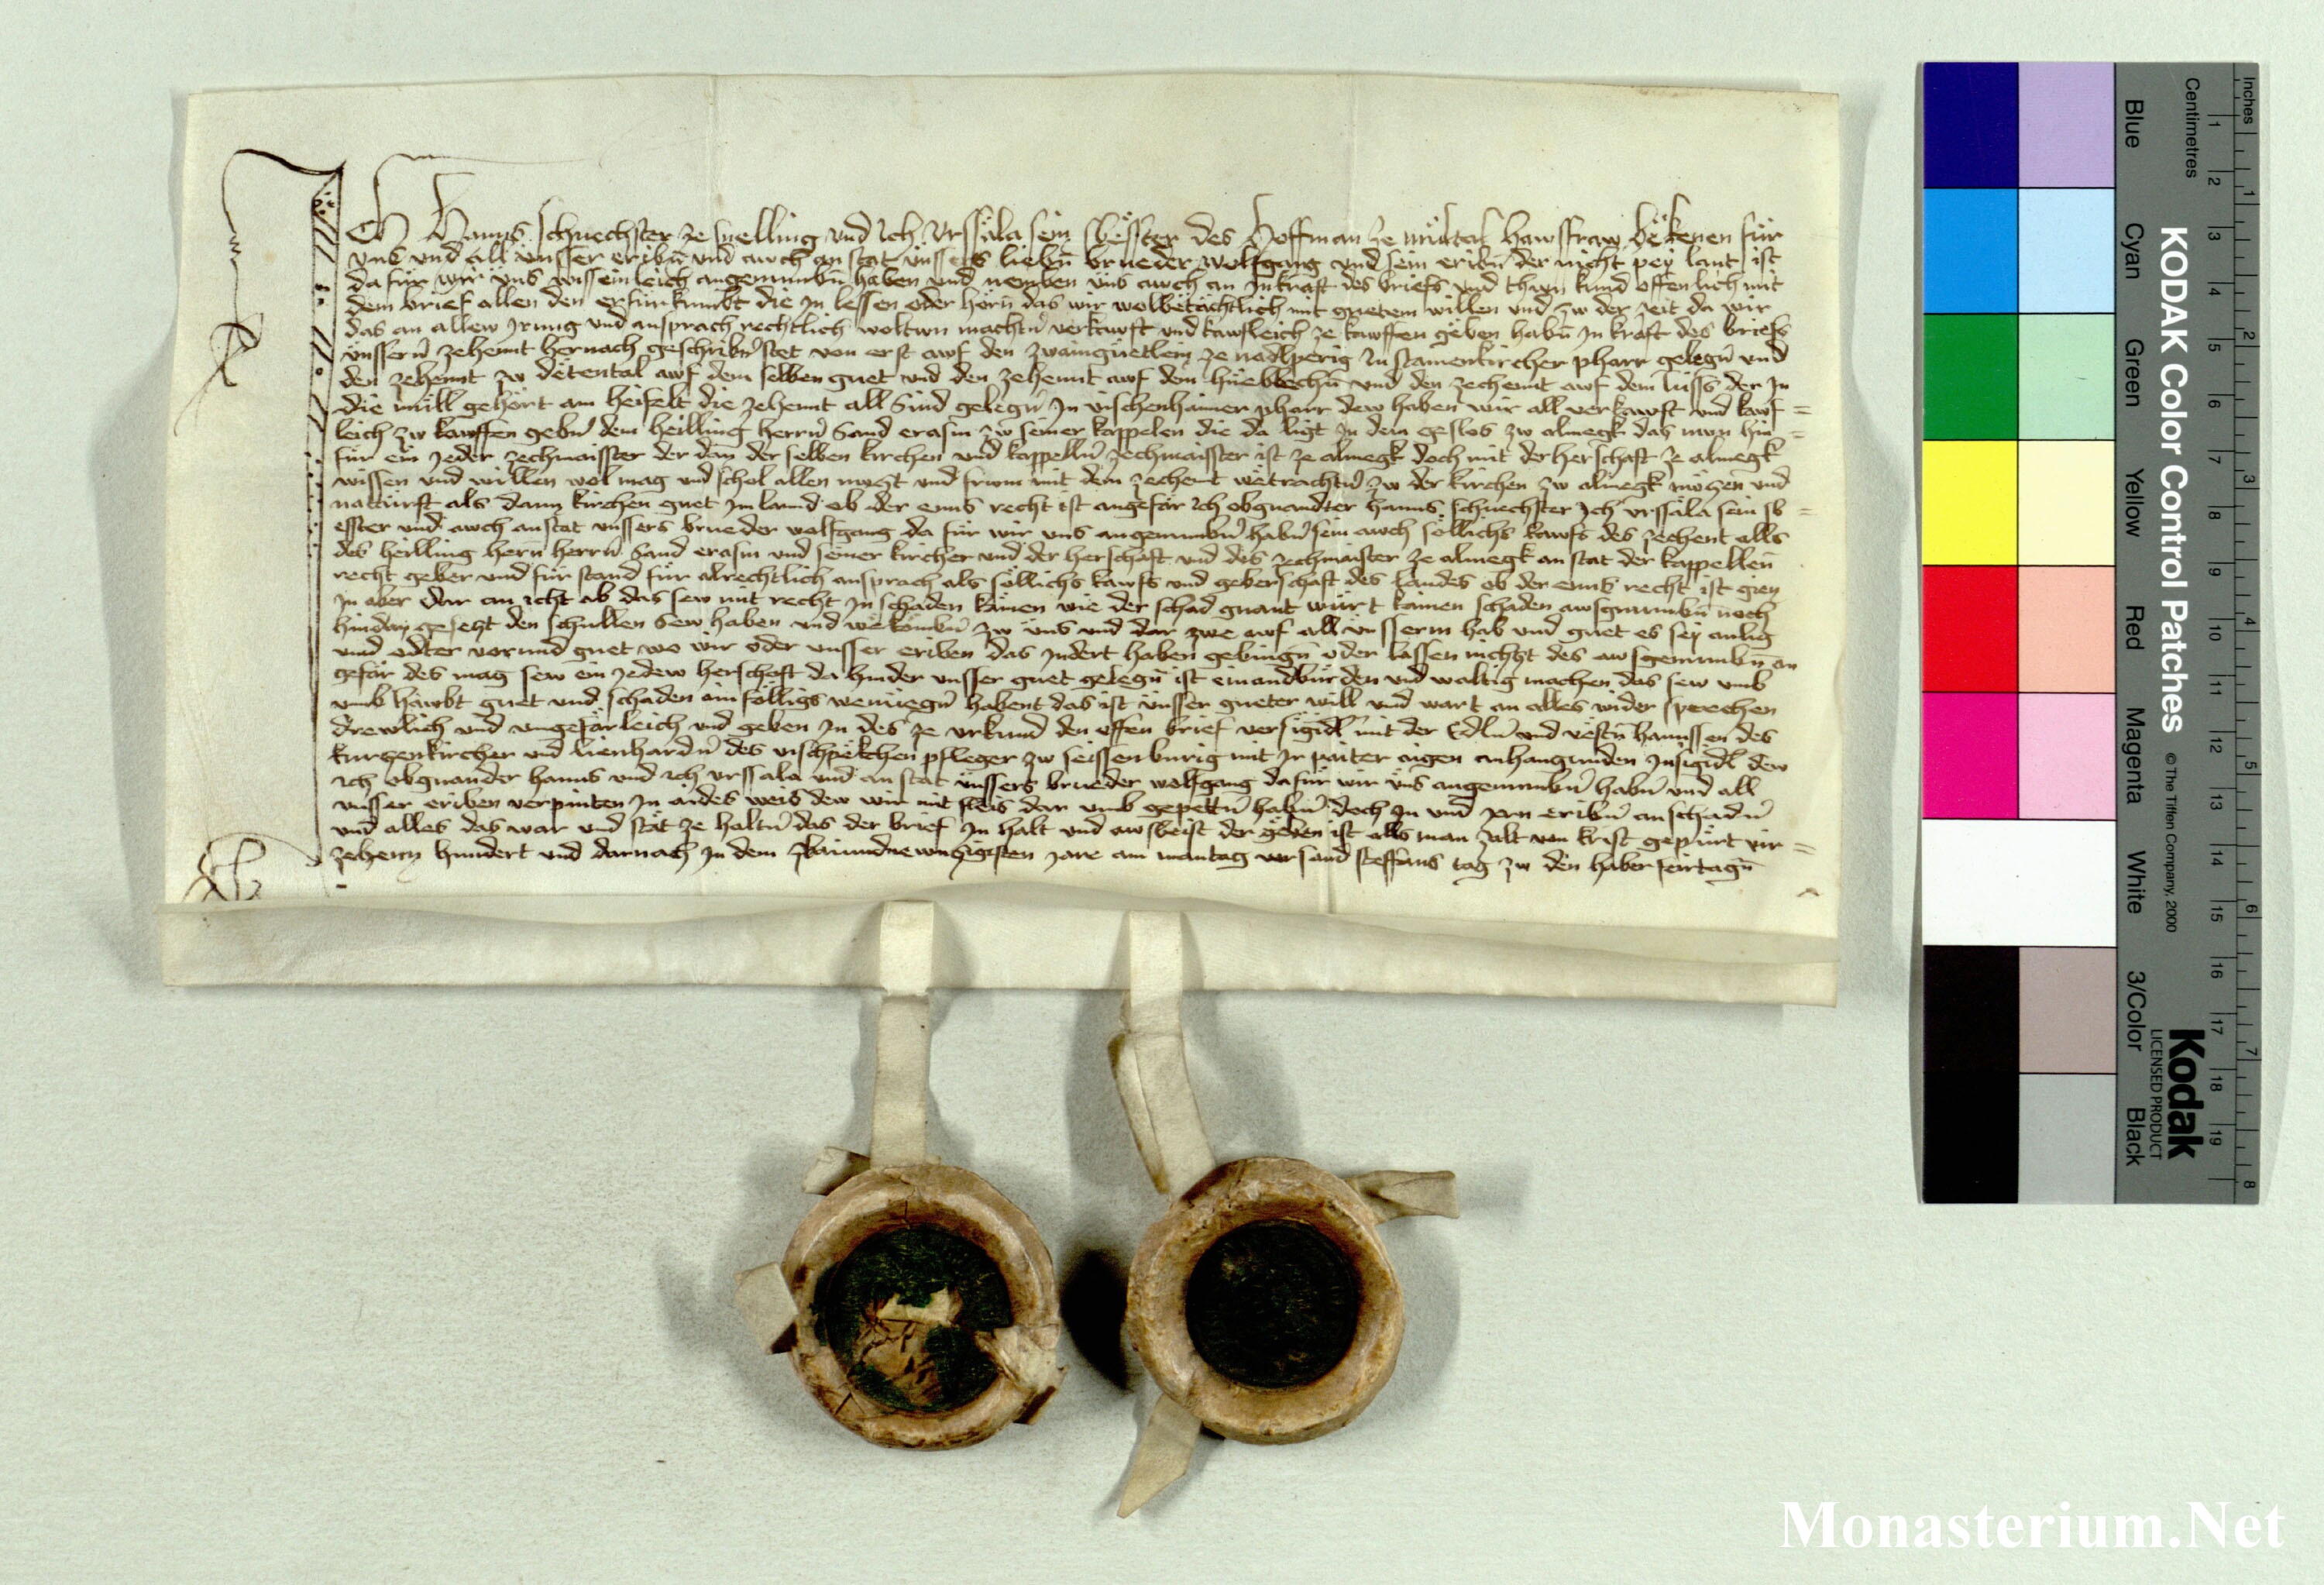 Ich Hanns schuechster ze snelling und Ich Urssäla sein swësster des Hoffman ze mültal hawsfraw bekenen für
uns und all ünsser eribn̄ und auch an stat ünssers liebn̄ brueder wolfgang und sein eribn̄ der nicht pey lant ist
da für wir üns wissenleich angenumbn̄ haben und nemben üns awch an In kraft des briefs und thuen kund offenlich mit
dem brief allen den erfürkumbt die In lessen oder horn̄ das wir wolbetächtlich mit guetem willen und zw der zeit da wir
das an allew irung und ansprach rechtlich woltun machtn̄ verkawft und kawfleich ze kawffen geben habn̄ In kraft des briefs
ünssern̄ zehennt hernach geschribn̄ stet von erst awf den zwain güetlein ze nadlperig In stainenkircher pharr gelegn̄ und
den zehennt zw detental awf dem selben guet und den zehennt awf dem huebbechn̄ und den zechennt awf dem lüss der In
die müll gehört am heifelt die zehennt all sind gelegn̄ In vischenhaimer pharr dew haben wir all verkawft und kawf =
leich zw kawffen gebn̄ dem heilling herrn̄ sand erasm zw seiner kappelen die da ligt In dem geslos zw almegk das nun hin =
für ein yeder zechmaisster der dan̄ der selben kirchen und kappelln̄ zechmaisster ist ze almegk doch mit der herschaft ze almegk
wissen und willen wol mag und schol allen nucz und frum mit dem zechent wetrachtn̄ zw der kirchen zw almegk nöczen und
natturft als dann kirchen guet Im land ob der enns recht ist angefär Ich obgnandter hanns schuechster Ich urssäla sein sb =
esster und awch anstat unssers brueder wolfgang da für wir uns angenumbn̄ habn̄ sein awch söllichs kawfs des zechent alls
des heilling hern̄ herrn̄ sand erasm und seiner kircher und der herschaft und des zechmaister ze almegk an stat der kappellen̄
recht geber und für stand für alrechtlich ansprach als söllichs kawfs und geberschaft des landes ob der enns recht ist gieng
In aber dar an icht ab das sew mit recht In schaden kämen wie der schad gnant würt kainen schaden awsgnumbn̄ noch
hindan geseczt den schullen sew haben und wekömbn̄ zw üns und dar zwe awf all ünsserm hab und guet es sey anlig
und odter varund guet wo wir oder unsser eriben das Indert haben gebingn̄ oder lassen nichcz des awsgenumbn̄ an
gefär des mag sew ein yedew herschaft da hinder unsser guet gelegn̄ ist einandbürden und waltig machen das sew umb
umb hawbt guet und schaden ain fölligs wenüegn̄ habent das ist ünsser gueter will und wart an alles wider sprechen
drewlich und ungefärleich und geben In des ze urkund den offen brief versigidl̄ mit der Edln̄ und vestn̄ hannssen des
kurczenkircher und lienhardn̄ des vischpekchen pfleger zw seissenburig mit Ir paiter aigen anhangunden Insigidl dew
Ich obgnander hanns und Ich urssala und an stat ünssers brueder wolfgang dafür wir üns angenumbn̄ habn̄ und all
unsser eriben verpinten In aides weis dew wir mit fleis dar umb gepettn̄ habn̄ doch In und yrn eribn̄ an schadn̄
und alles das war und stät ze haltn̄ das der brief In halt und awsbeist der geben ist alls man zalt von krist gepürt vir =
zehenn hundert und darnach In dem zbaiundnewnczigisten jare am mantag vor sand steffans tag zw den haber feirtagn̄
KODAK Color Control Patches
© The Tiffen Company, 2000
Kodak
LICENSED PRODUCT
Blue Cyan Green Yellow Red Magenta White 3/Color Black
Inches 1 2 3 4 5 6 7 8
Centimetres 1 2 3 4 5 6 7 8 9 10 11 12 13 14 15 16 17 18 19
Monasterium.Net